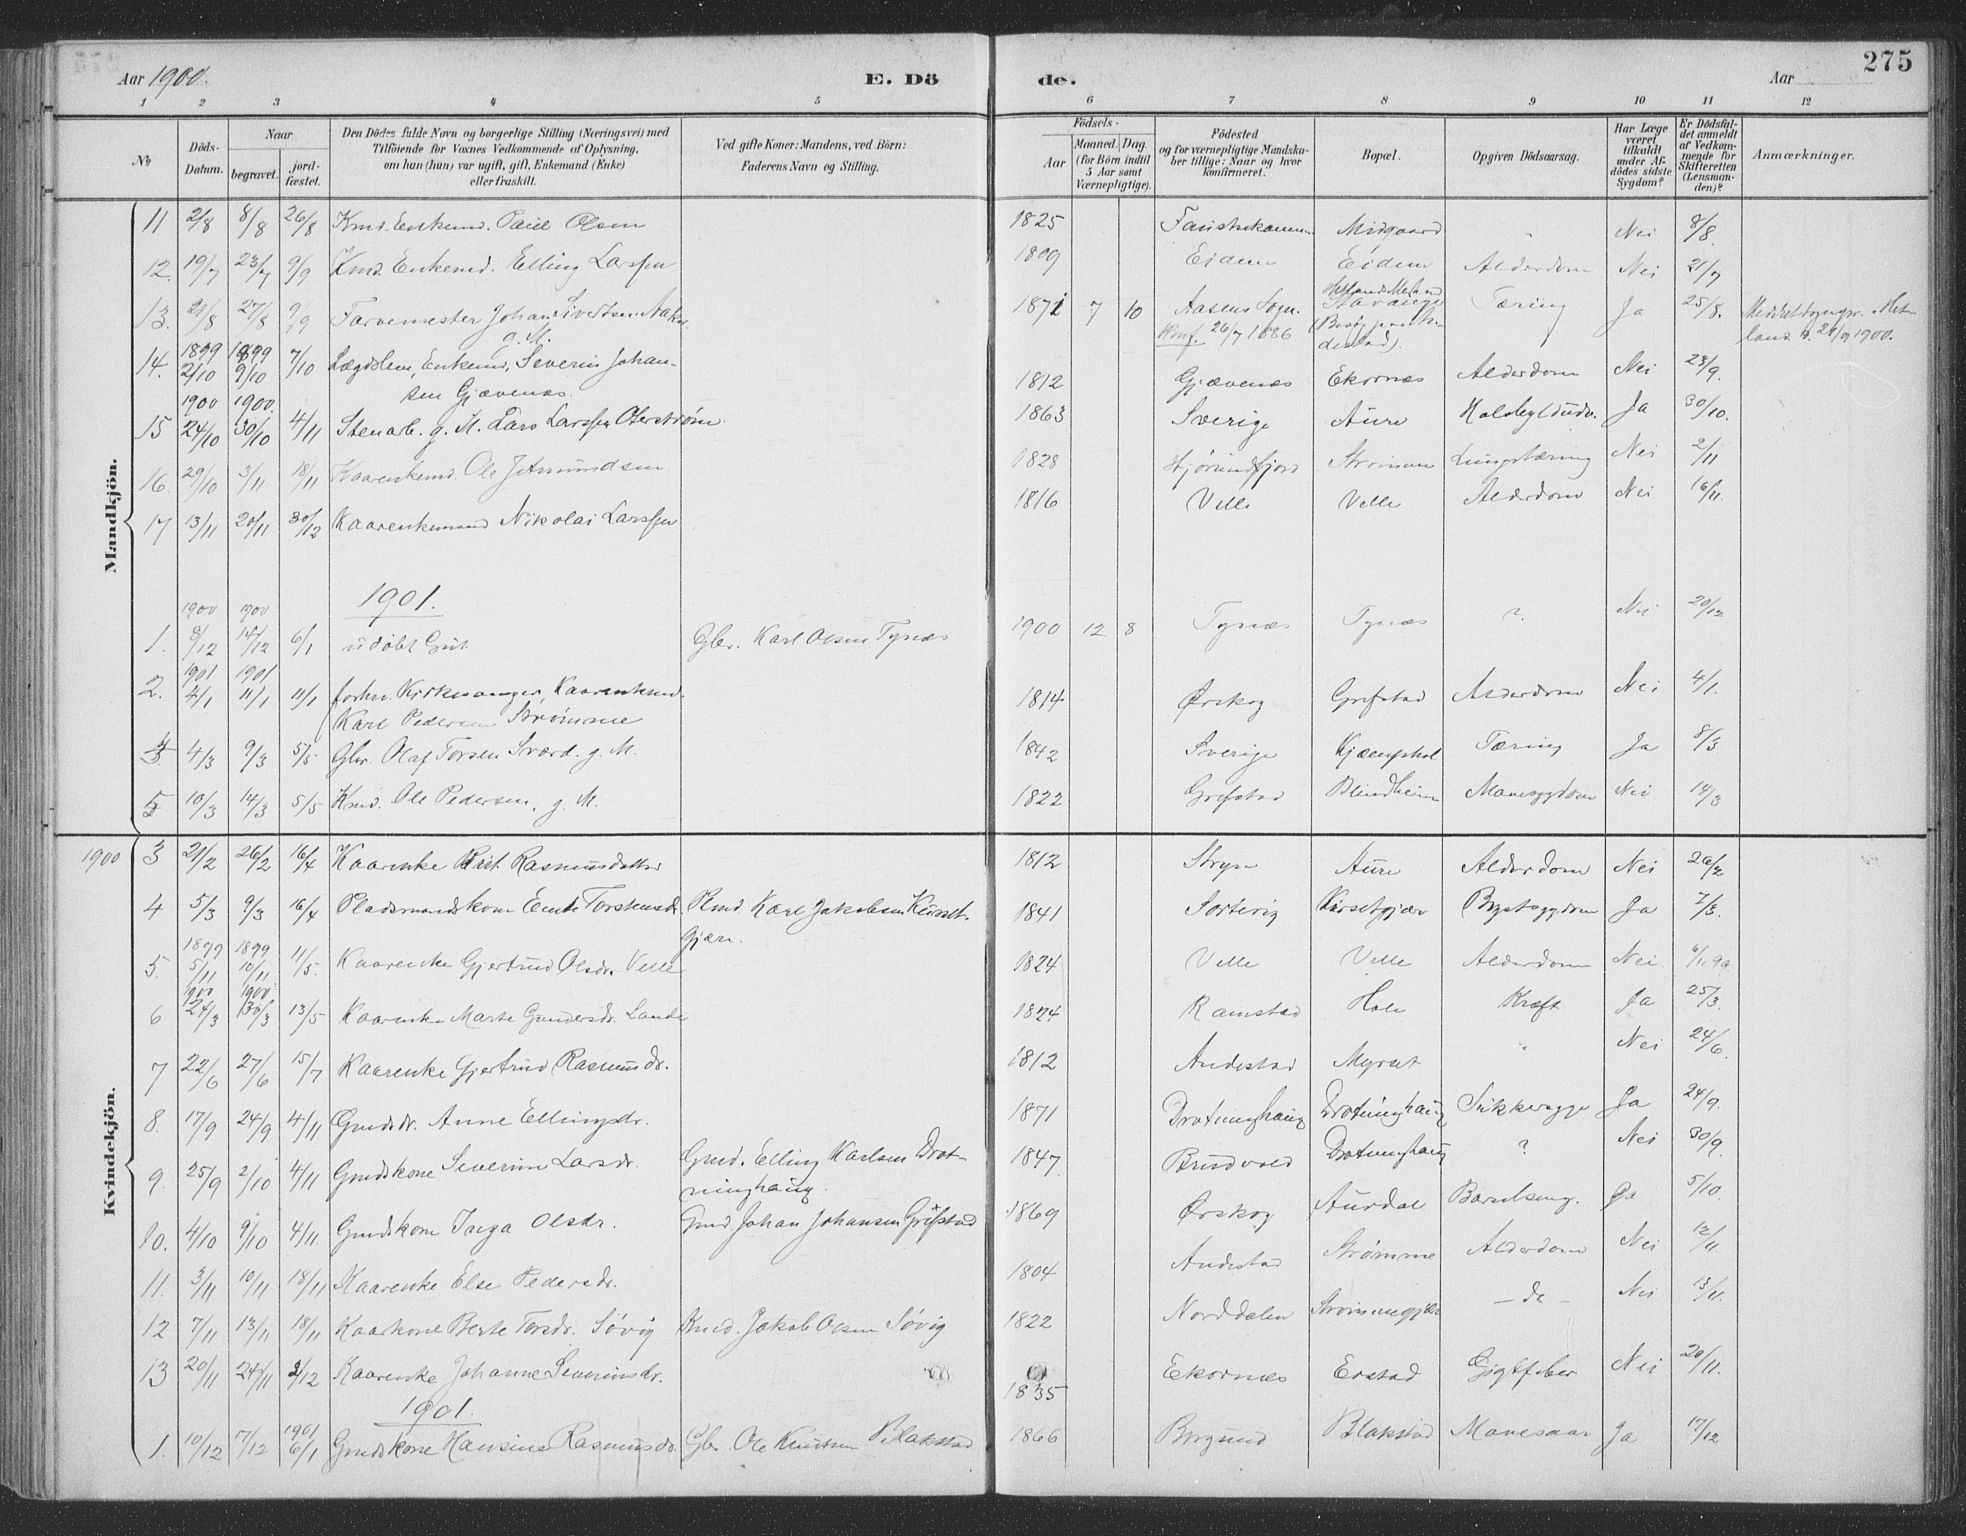 Aar 1900. E. Dö de. Aar 275
1 2 3 4 5 6 7 8 9 10 11 12
№
Döds-Datum.
Naar begravet. jordfæstet.
Den Dödes fulde Navn og borgerlige Stilling (Næringsvei) med Tilföiende for Voxnes Vedkommende af Oplysning, om han (hun) var ugift, gift, Enkemand (Enke) eller fraskilt.
Ved gifte Koner: Mandens, ved Börn: Faderens Navn og Stilling.
Födsels- Aar Maaned. Dag. (for Börn indtil 5 Aar samt Værnepligtige).
Födested og for værnepligtige Mandskaber tillige: Naar og hvor konfirmeret.
Bopæl.
Opgiven Dödsaarsag.
Har Læge været tilkaldt under Afdödes sidste Sygdom?
Er Dödsfaldet anmeldt af Vedkommende for Skifteretten (Lensmanden)?
Anmærkninger.
Mandkjön.
11 2/8 8/8 26/8 Kmd. Enkemd. Paul Olsen 1825 Midgaard " Nei 8/8.
12. 19/7 23/7 9/9 Kmd. Enkemd. Elling Larssen 1809 Eidem Eidem Alderdom Nei 21/7
13. 21/8 27/8 9/9 Farvemester Johan Sivertsen g. M. 1871 7 10 Aasens Sogn Konf. 26/7 1886 Stavanger Tæring Ja 25/8.
14. 1899 2/10 1899 9/10 7/10 Lægdslem, Enkemd. Severin Johansen Gjævenæs. 1812 Gjævenæs Ekornæs Alderdom Nei 23/9.
15 1900 24/10 1900. 30/10 4/11 Stenarb. g. M. Lars Larssen Oterstrøm. 1863 Sverige Aure Ja 30/10.
16. 29/10 3/11 18/11 Kaarenkemd. Ole J. Amundsen. 1828 Hjørundfjord Strømmen Lungetæring Nei 2/11
17 13/11 20/11 30/12 Kaarenkemand Nikolai Larssen 1816 Velle Velle Alderdom Nei 16/11.
1901.
1. 1900 8/12 1900 14/12 6/1 udøbt Gut Gbr. Karl Olsen Tynæs 1900 12 8 Tynæs Tynæs ? Nei 20/12
2. 1901 4/1 1901 11/1 11/1 forhv. Kirkesanger, Kaarenkemd. Karl Pedersen Strømme 1814 Ørskog Grefstad Alderdom Nei 4/1.
4/3 9/3 5/5 Gbr. Olaf Torsen Sværd. g. M. 1842 Sverige Kjæmphol Tæring Ja 8/3
5 10/3 14/3 5/5 Kmd. Ole Pedersen, g. M. 1822 Grefstad Blindheim Mavesygdom Nei 14/3
Kvindekjön.
1900 3 21/2 26/2 16/4 Kaarenke Rasmusdatter 1812 Stryn Aure Alderdom Nei 26/2
4 5/3 9/3 16/4 Pladsmandskone Torstensdr. Plmd. Karl Jakobsen Kurset-gjære. 1841 Sortevig Kursetgjære Brystsygdom Ja 7/3.
5. 1899 5/11 1899 10/11 11/5. Kaarenke Gjertrud Olsdr. Velle 1824 Velle Velle Alderdom Nei 6/11 99
6 1900 24/3 1900 30/3 13/5 Kaarenke Marte Gundersdr. Lande 1824 Ramstad Hole Kræft Ja 25/3.
7 22/6 27/6 15/7 Kaarenke Gjertrud Rasmusdr. 1812 Andestad Myrset " Nei 24/6.
8. 17/9 24/9 4/11. Gmdsdr. Anne Ellingsdr. 1871 Drotninghaug Drotninghaug Sukkersyge Ja 24/9.
9. 25/9 2/10 4/11 Gmdskone Severine Larsdr. Gmd. Elling Karlsen Drotninghaug. 1847 Brudvold Drotninghaug ? Nei 30/9.
10. 4/10 9/10 4/11 Gmdskone Inga Olsdr. Gmd. Johan Johansen Grefstad 1869 Ørskog Aurdal Barselseng. Ja 5/10.
11. 3/11 10/11 18/11 Kaarenke Else Pedersdr. 1804 Andestad Strømme Alderdom Nei 12/11.
12 7/11 13/11 18/11 Kaarkone Berte Torsdr. Søvig Kmd. Jakob Olsen Søvig 1822 Norddalen Strømmegjære — do — Nei 13/11.
13 20/11 24/11 2/12 Kaarenke Johanne Severinsdr. 1835 Ekornæs Erstad Gigtfeber Nei 20/11.
1901.
1. 10/12 17/12 1901 6/1 Gmdskone Hansine Rasmusdr. Gbr. Ole Knutsen Blakstad 1866 Borgund Blakstad Mavesaar Ja 17/12